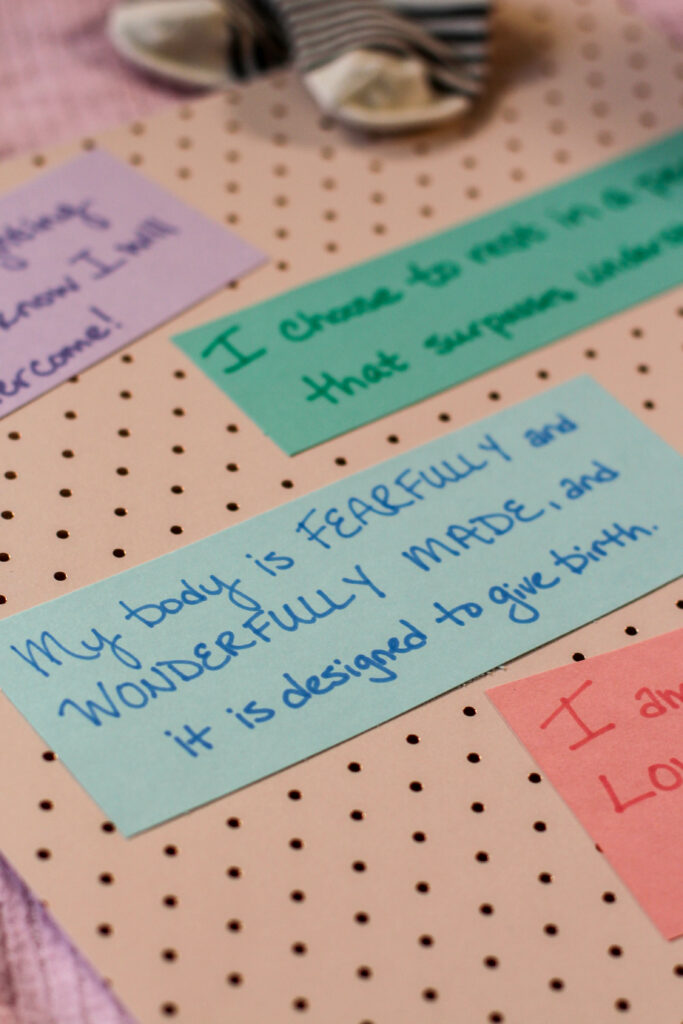 know I will
I choose to rest in a
that surpasses
My body is FEARFULLY and
WONDERFULLY MADE, and
it is designed to give birth.
I am